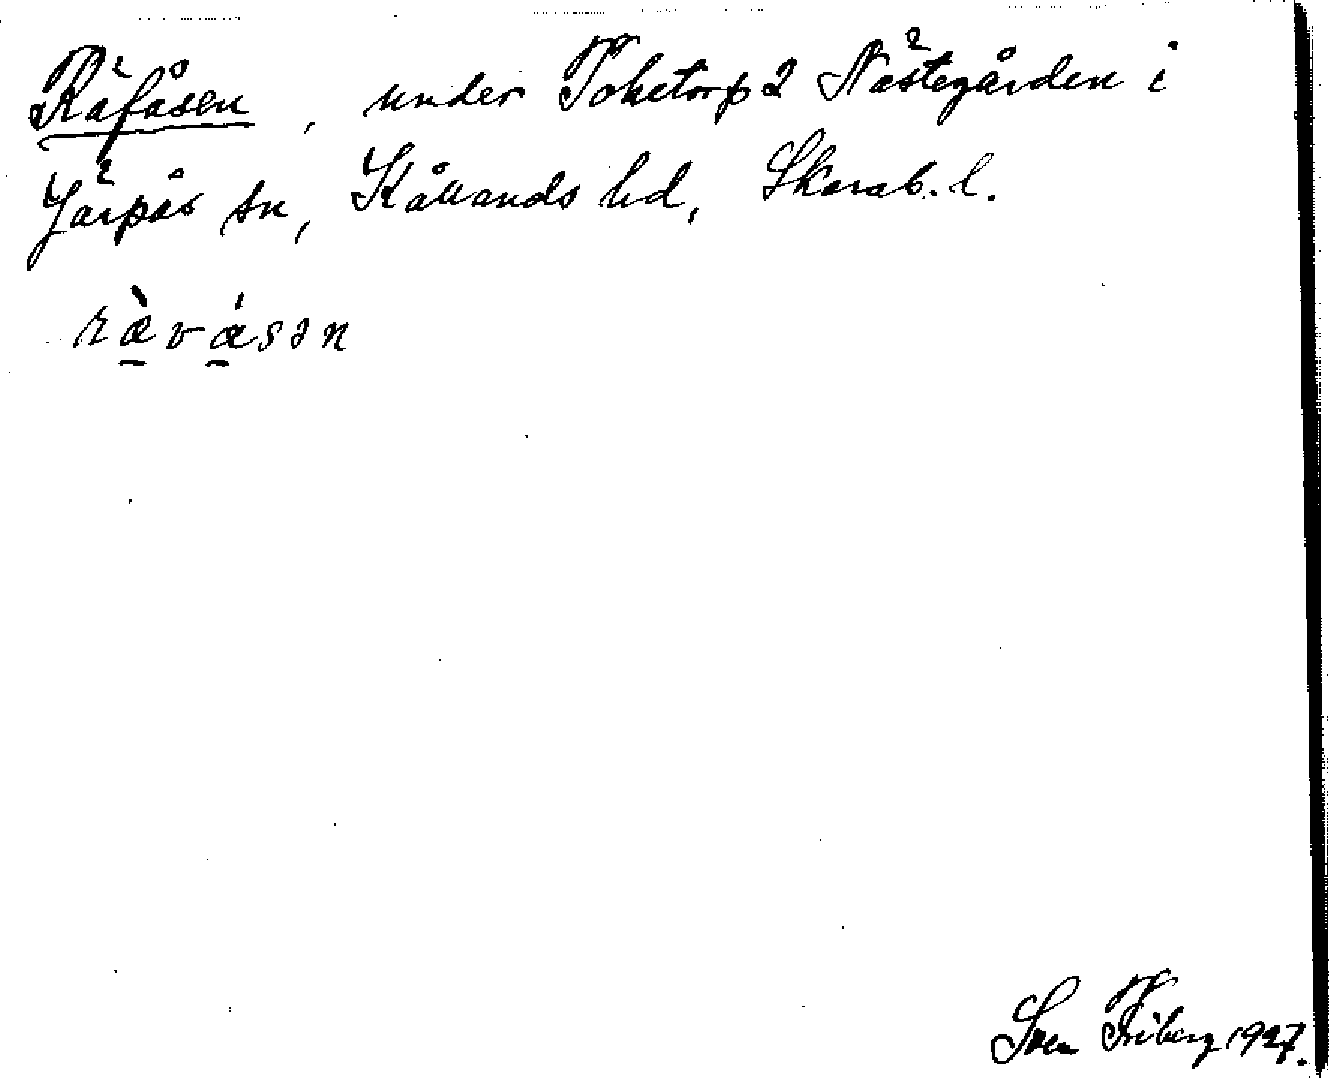 Räfåsen, under Toketorp 2 Nästegården i
Järpås sn, Kållands hd, Skarab. l.
ræ̀vǽsən
Sven Friberg 1927.